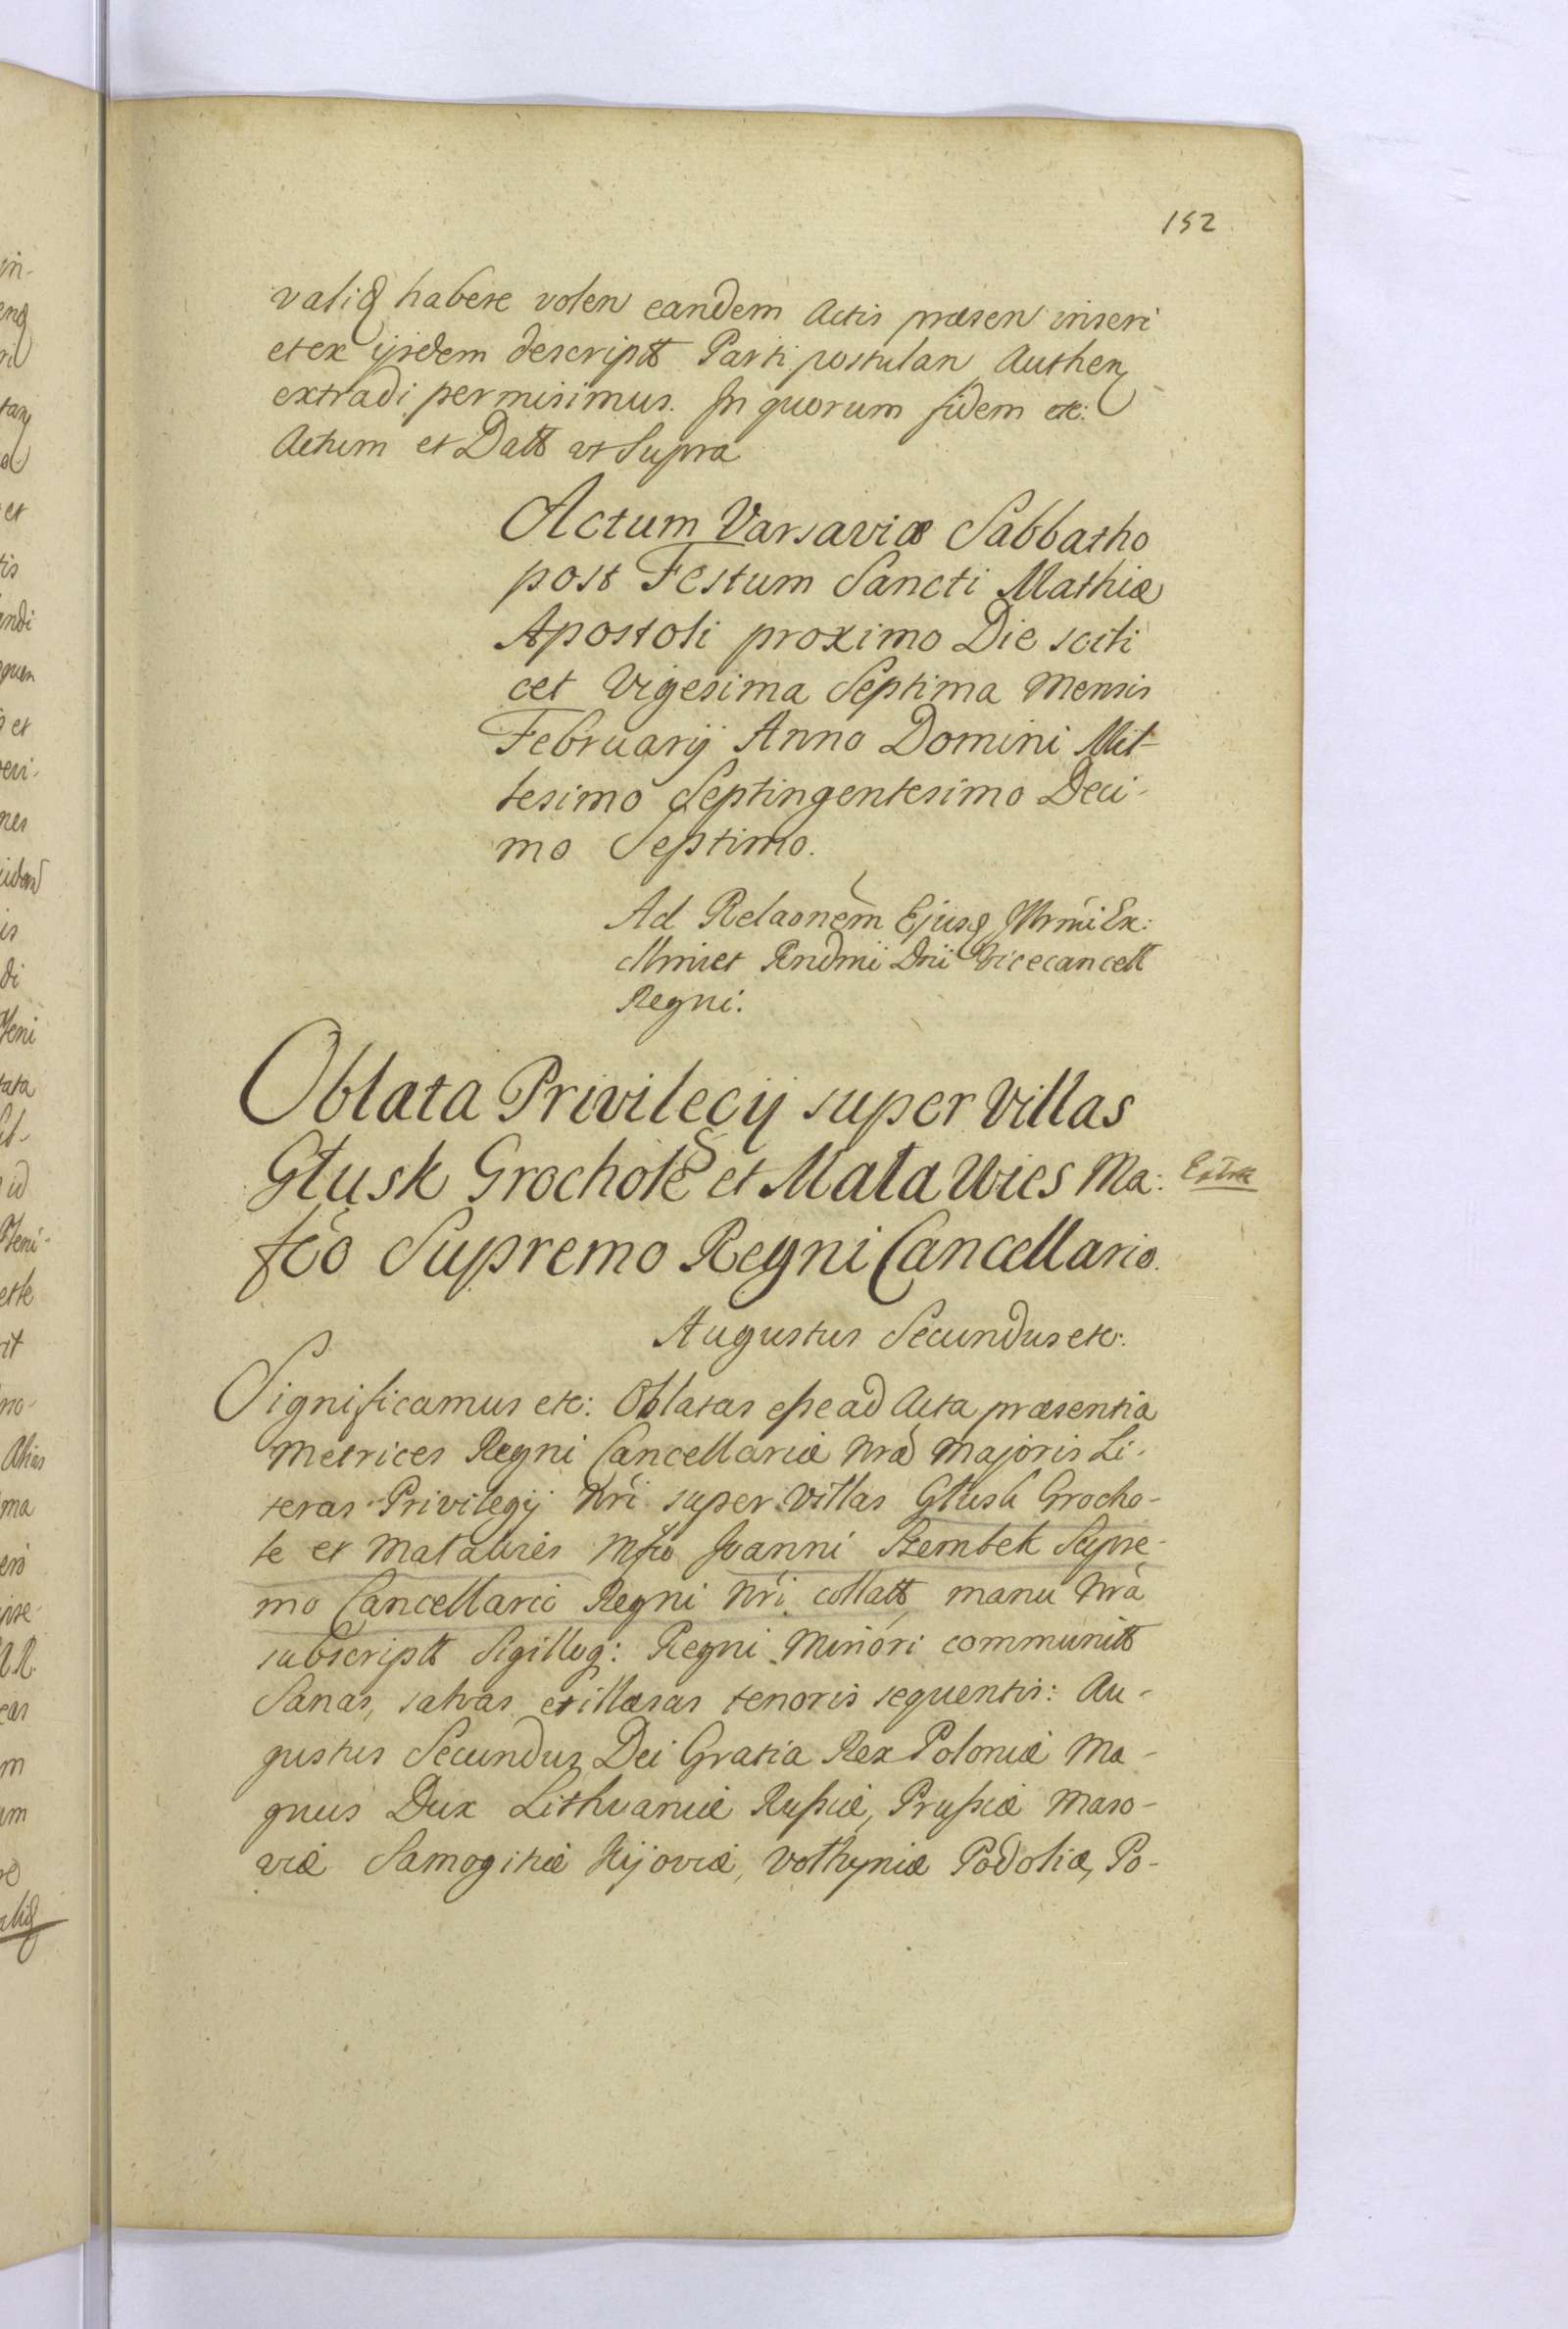 152
valiq habere volen eandem Actis præsen inseri
et ex ijsdem descriptt Parti postulan Authen
extradi permisimus. In quorum fidem etc:
Actum et Datt ut Supra
Actum Varsaviæ Sabbatho
post Festum Sancti Mathiæ
Apostoli proximo Die scili
cet Vigesima Septima Mensis
Februarij Anno Domini Mil-
lesimo Septingentesimo Deci-
mo Septimo.
Ad Relaonem Ejusq Illrmi Ex:
Rndmi Dni Vicecancell
Regni.
Oblata Privilegij super Villas
Głusk Grochole et Mała Wies Ma: Extra
fco Supremo Regni Cancellario.
Augustus Secundus etc:
Significamus etc: Oblatas esse ad Acta præsentia
Metrices Regni Cancellariæ Nræ Majoris Li-
teras Privilegij Nri super Villas Głusk Grocho-
le et Maławies Mfco Joanni Szembek Supre-
mo Cancellario Regni Nri collatt, manu Nra
subscriptt Sigilloq: Regni Minori communitt
Sanas, salvas et illæsas tenoris sequentis: Au-
gustus Secundus Dei Gratia Rex Poloniæ Ma-
gnus Dux Lithvaniæ Russiæ, Prussiæ Maso-
viæ Samogitiæ Kijoviæ, Volhyniæ Podoliæ, Po-